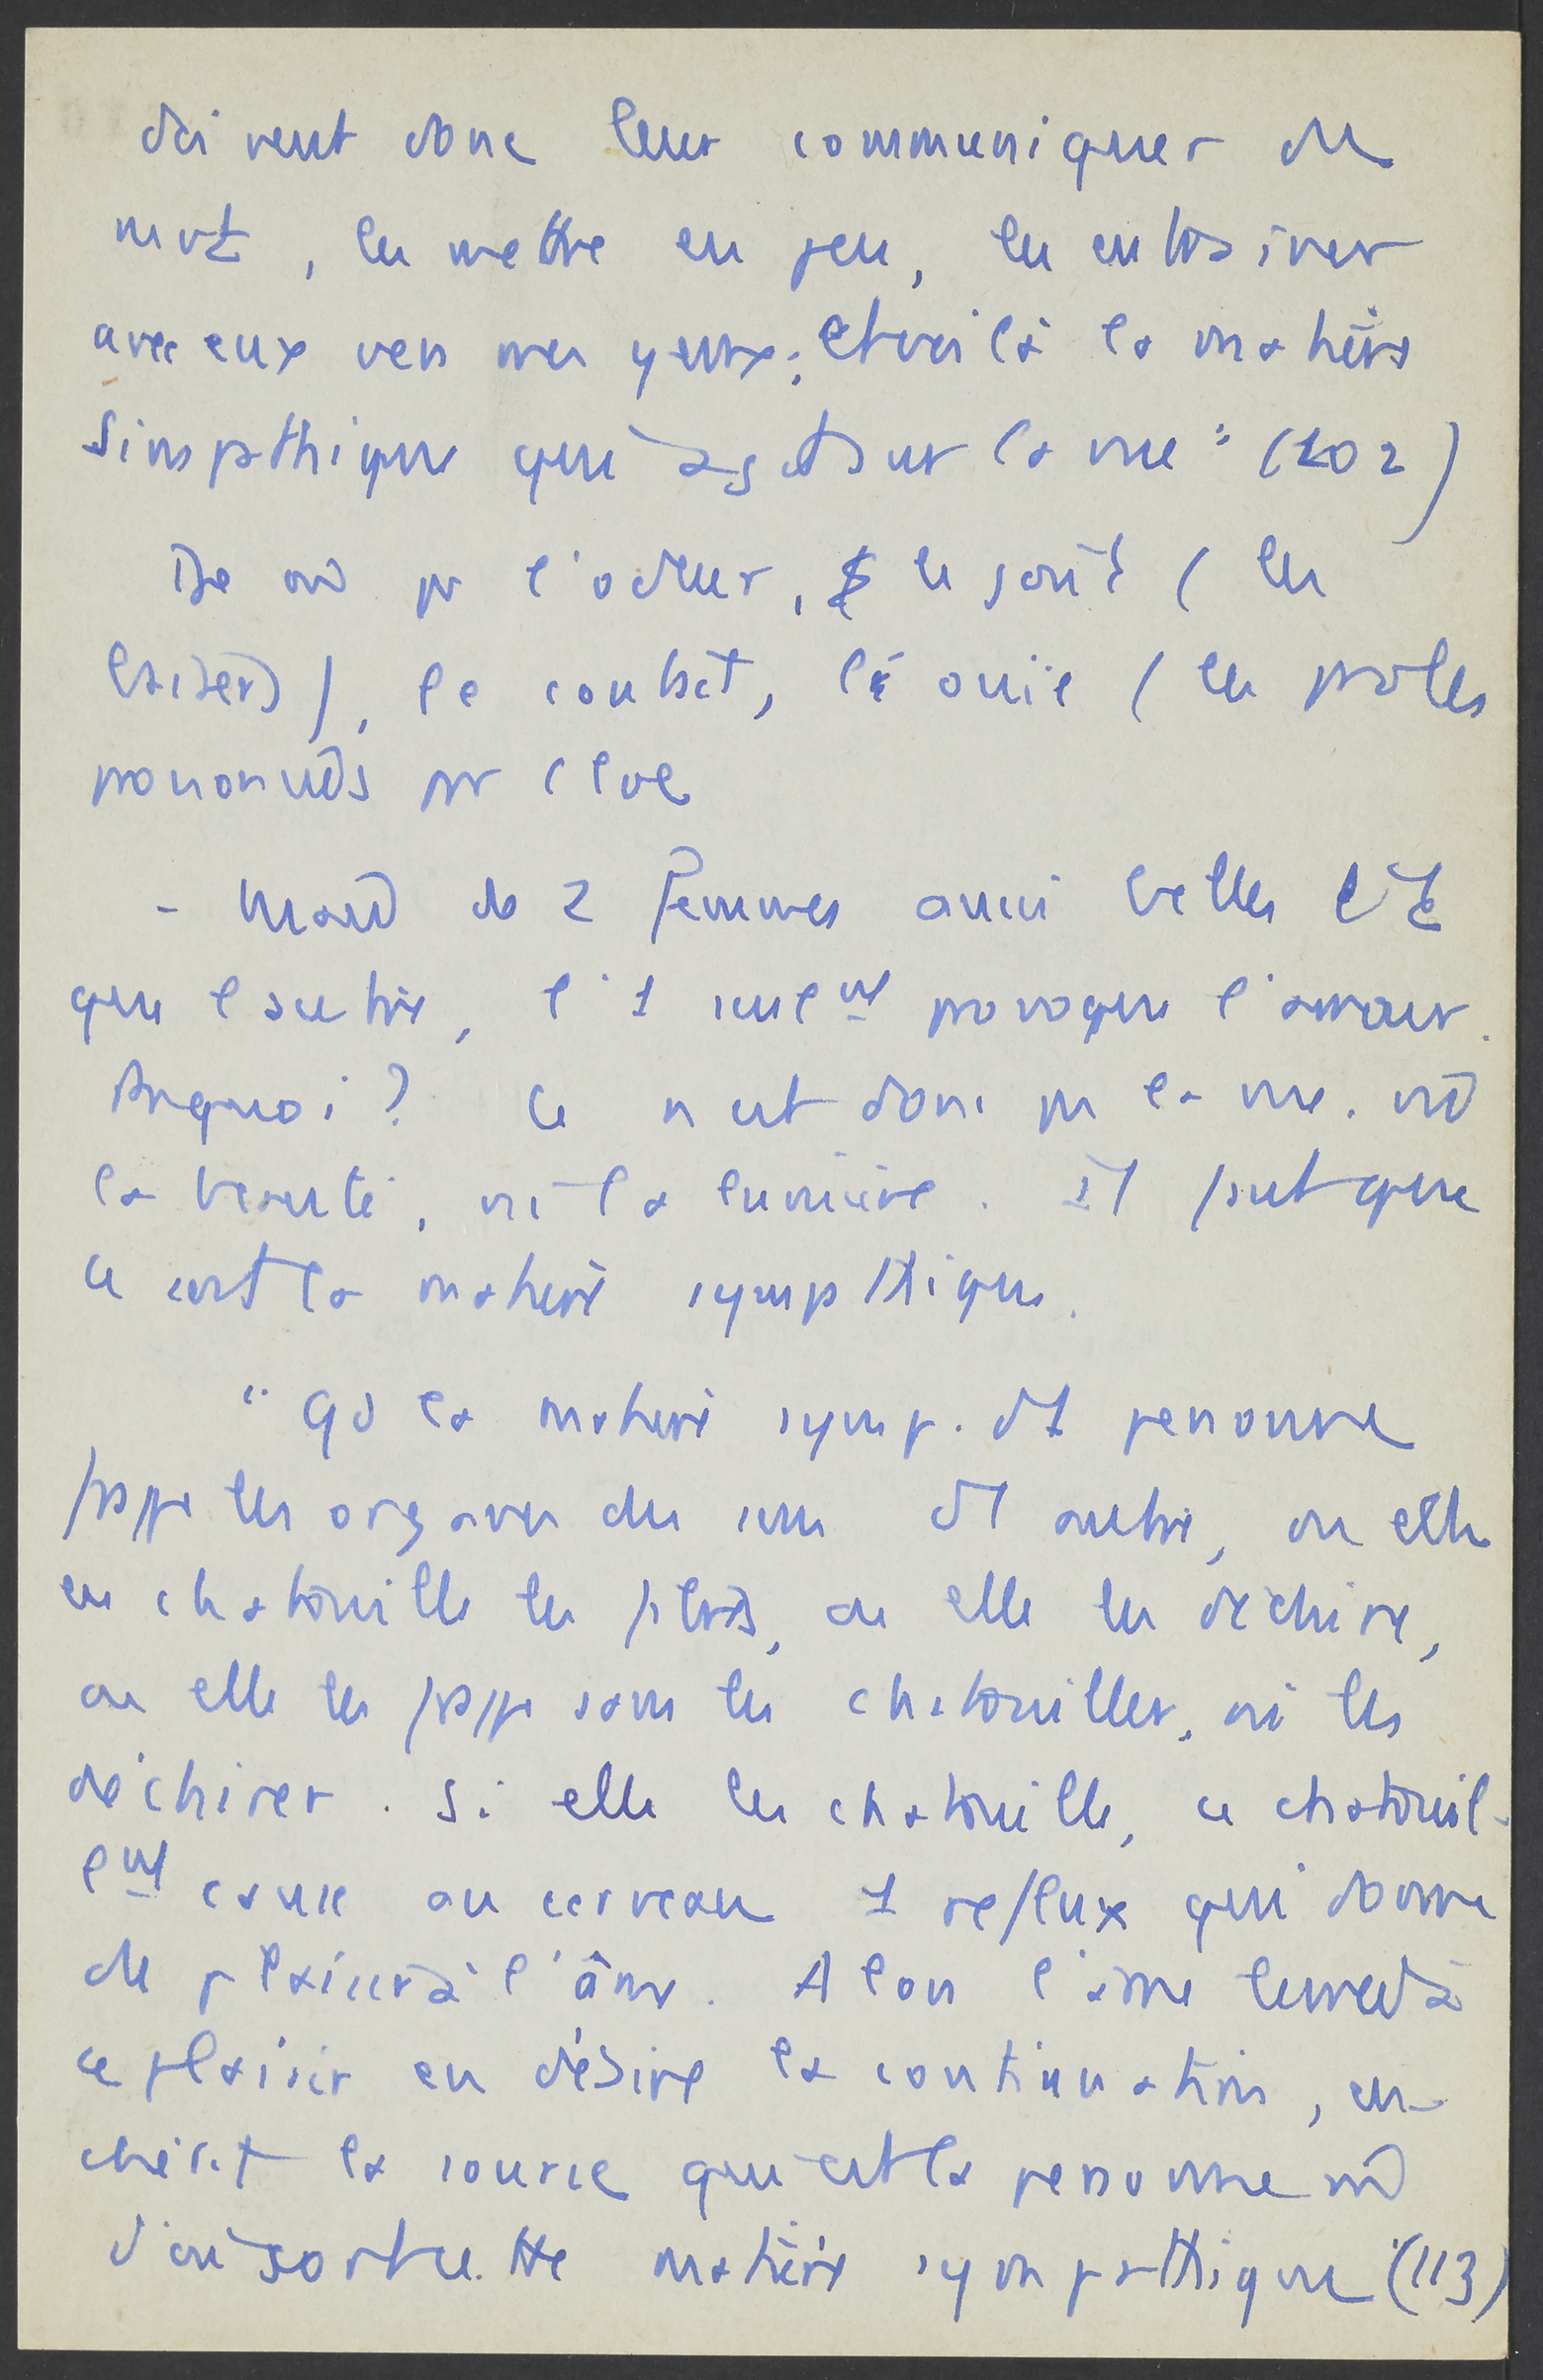 doivent donc leur communiquer du
mvt, les mettre en feu, les entrainer
avec eux vers mes yeux; et voilà la matière
simpathique qui agit sur la vue" (102)
De m̂ pr l'odeur, le goût (les
baisers), le contact, l'ouïe (les paroles
prononcées par Cloé
- Quand de 2 femmes aussi belles l'1
que l'autre, l'1 seulemt provoque l'amour.
Pourquoi ? Ce n'est donc pas la vue, ni
la beauté, ni la lumière. Il faut que
ce soit la matière sympathique.
"Qd la matière symp. d'1 personne
frappe les organes des sens d'1 autre, ou elle
en chatouille les fibres, ou elle les déchire,
ou elle les frappe sans les chatouiller, ni les
déchirer. Si elle les chatouille, ce chatouil-
lemt cause au cerveau 1 reflux qui donne
du plaisir à l'âme. Alors l'âme
ce plaisir en désire la continuation, en
chérit la source qui est la personne m̂
d'où sort cette matière sympathique (113)